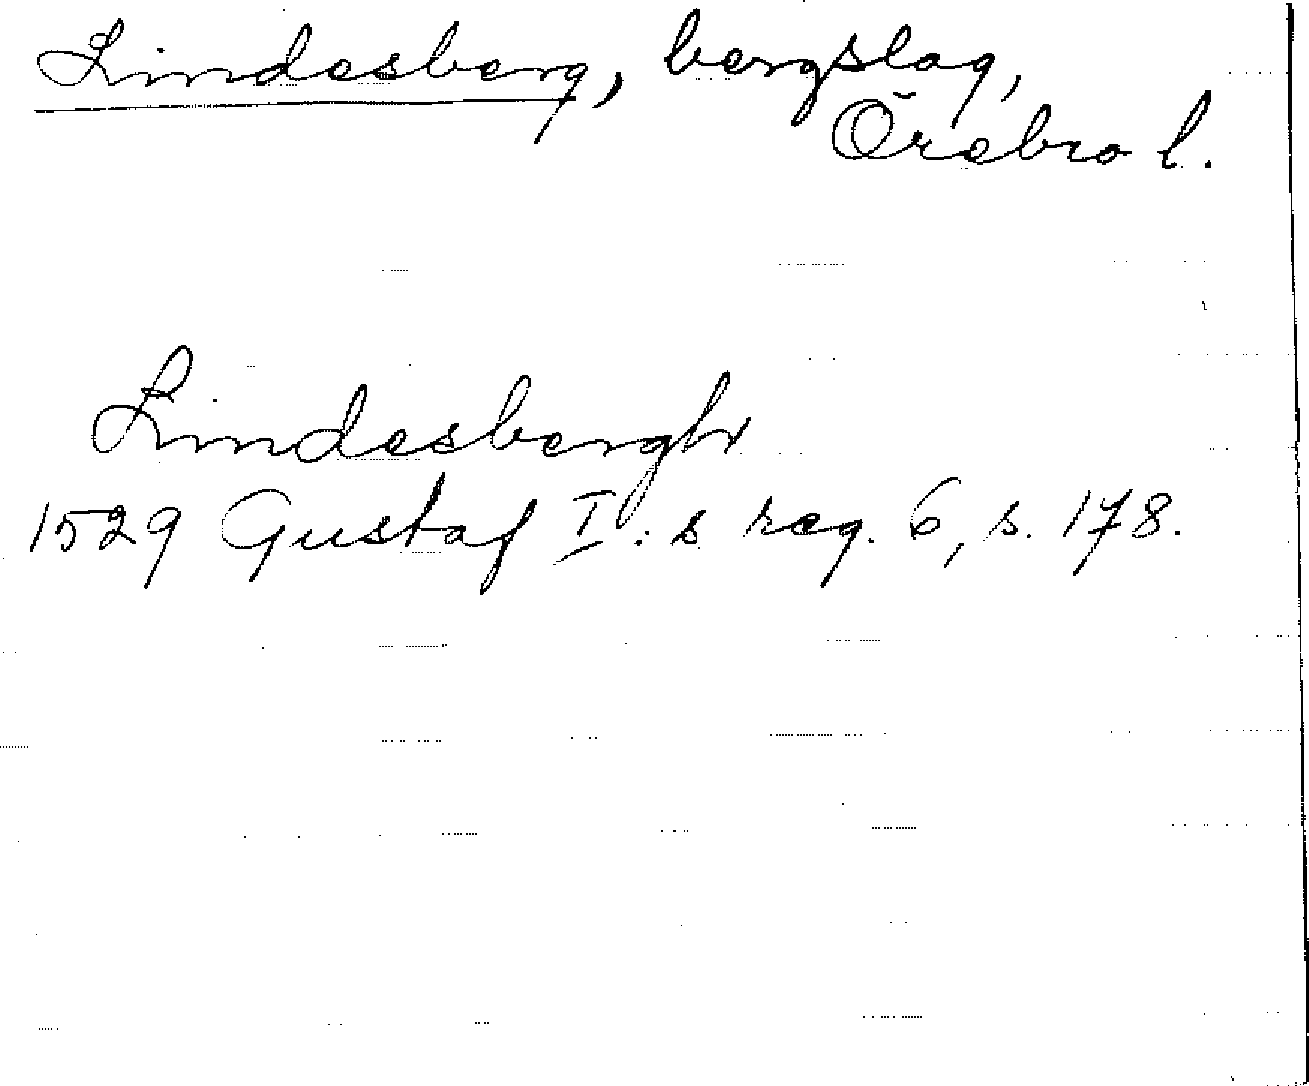 Lindesberg, bergslag,
Örebro l.
Lindesbergh
1529 Gustaf I:s reg. 6, s. 178.